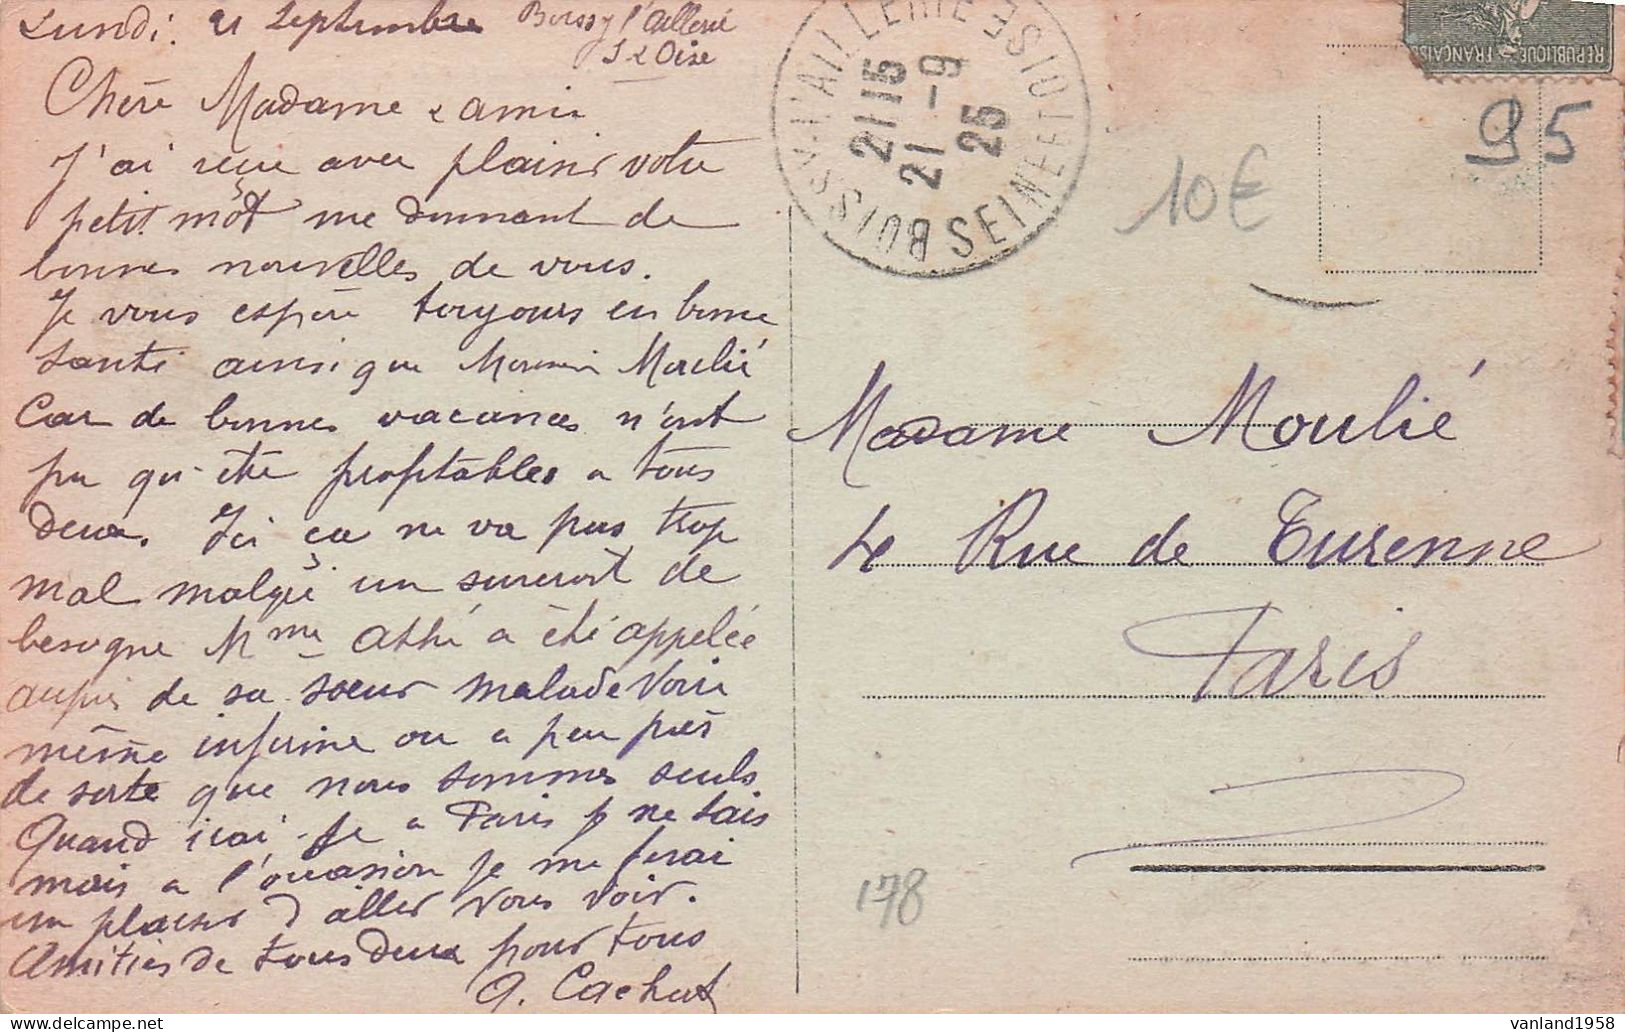 Lundi 21 Septembre Boissy l'Aillerie
S & Oise
Chère Madame & amie
J'ai reçue avec plaisir votre
petit mot me donnant de
bonnes nouvelles de vous.
Je vous espère toujours en bonne
santé ainsi que Monsieur Moulié
Car de bonnes vacances n'ont
pu qu'être profitables a tous
deux. Ici ça ne va pas trop
mal malgré un surcroit de
besogne Mme Abbé a été appelée
auprès de sa soeur malade Voire
même infirme ou a peu près
de sorte que nous sommes seuls
Quand irai-je a Paris je ne sais
mais a l'occasion je me ferai
un plaisir d'aller vous voir.
Amitiés de tous deux pour tous
A. Cachut
BOISSY-L'AILLERIE
SEINE ET OISE
21 15
21 -9
25
REPUBLIQUE FRANÇAISE
95
10€
Madame Moulié
4 Rue de Turenne
Paris
178
vanland1958